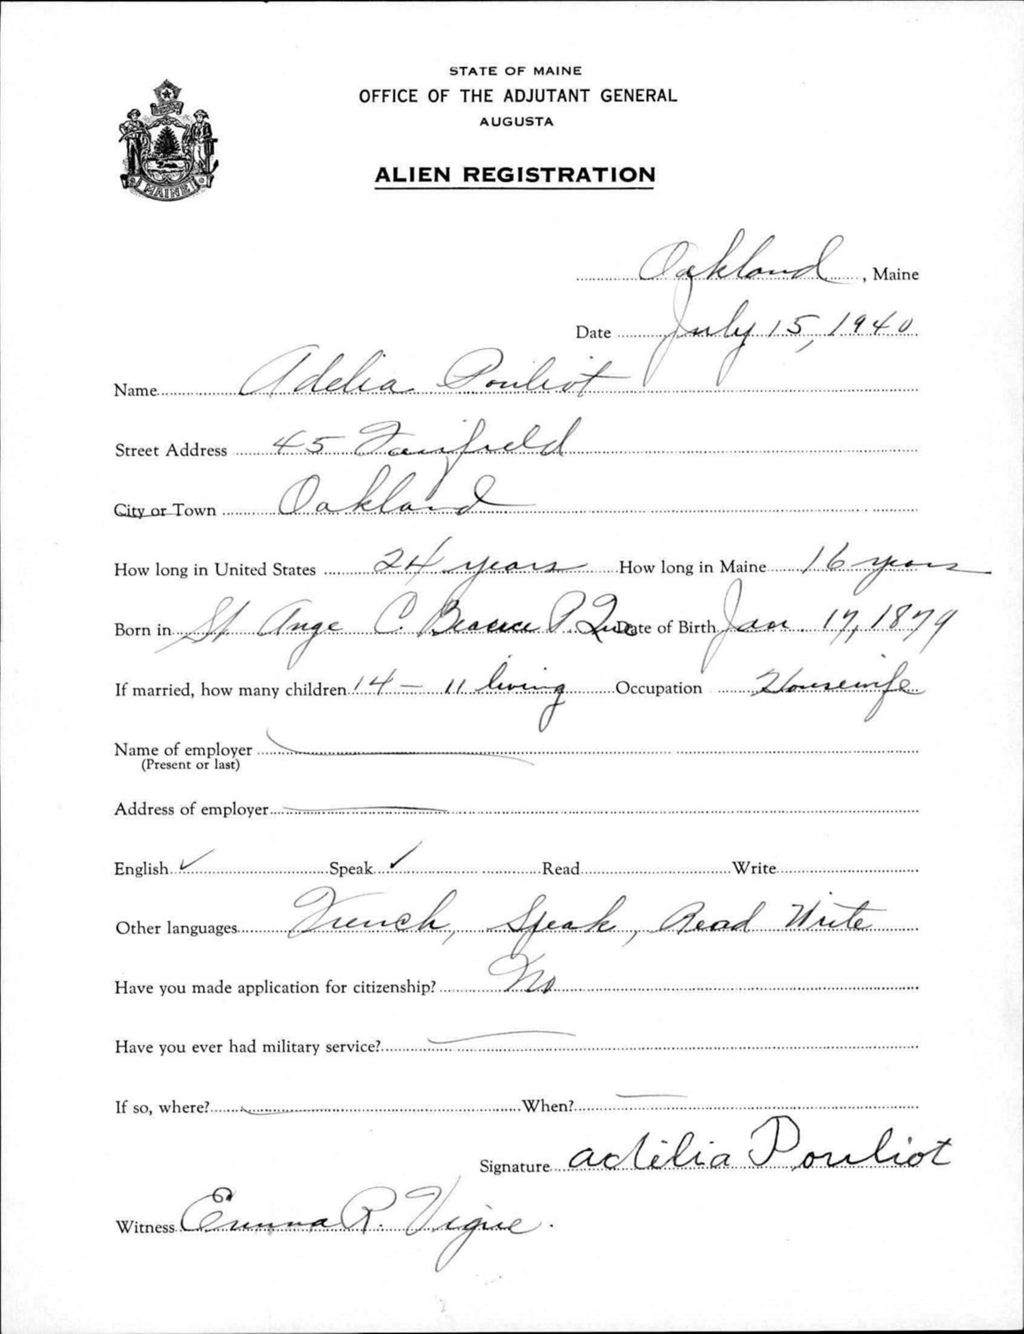 STATE OF MAINE
OFFICE OF THE ADJUTANT GENERAL
AUGUSTA
ALIEN REGISTRATION
MAINE
Oakland, Maine
Date July 15, 1940
Name Adelia Pouliot
Street Address 45 Fairfield
City or Town Oakland
How long in United States 24 years How long in Maine 16 years
Born in St Ange C. Beauce P. Que Date of Birth Jan. 17, 1879
If married, how many children 14 - 11 living Occupation Housewife
Name of employer
(Present or last)
Address of employer
English ✓ Speak ✓ Read Write
Other languages French, Speak, Read Write
Have you made application for citizenship? No
Have you ever had military service?
If so, where? When?
Signature adélia Pouliot
Witness Emma R. Vigue.